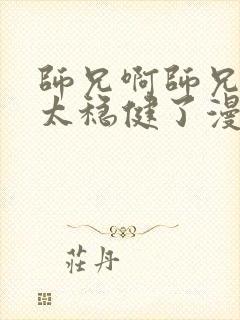 師兄啊師兄
太穩健了漫
莊丹